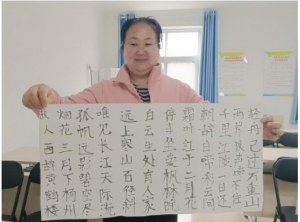 故人西辞黄鹤楼
烟花三月下杨州
孤帆远影碧空尽
唯见长江天际流
远上寒山石径斜
白云生处有人家
停车坐爱枫林晚
霜叶红于二月花
朝辞白帝彩云间
千里江陵一日还
两岸猿声啼不住
轻舟已过万重山